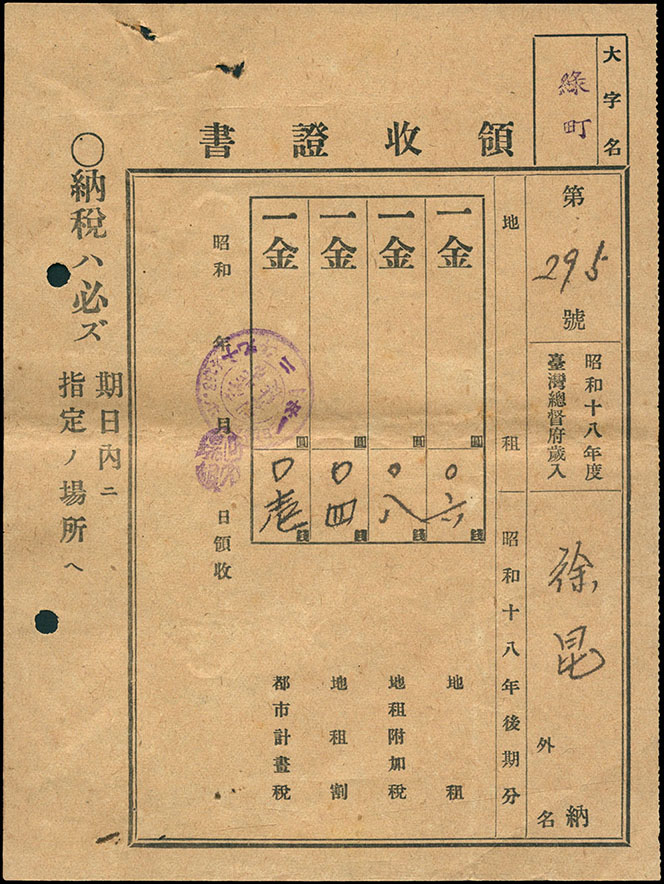 大字名
綠町
領收證書
第295號
昭和十八年度
臺灣總督府歲入
徐昆
外
名
納
地租
昭和十八年後期分
一金
圓
〇六
錢
地租
一金
圓
〇八
錢
地租附加稅
一金
圓
〇四
錢
地租割
一金
圓
〇壱
錢
都市計畫稅
昭和 年 月 日領收
〇納稅ハ必ズ
期日內ニ
指定ノ場所ヘ